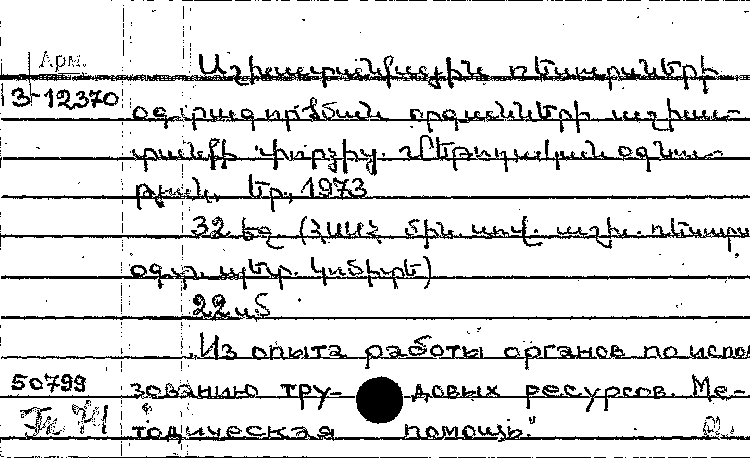 Арм.
Աշխատանքային ռեսուրսների
3-12370
օգտագործման օրգանների աշխա-
տանքի փորձից. Մեթոդական օգնու-
թյուն, Եր., 1973
32 էջ. (ՀՍՍՀ Մին. սով. աշխ. ռեսուրս
օգտ. պետ. կոմիտե)
22 սմ
Из опыта работы органов по испол
50799
зованию тру- довых ресурсов. Ме-
тодическая помощь."